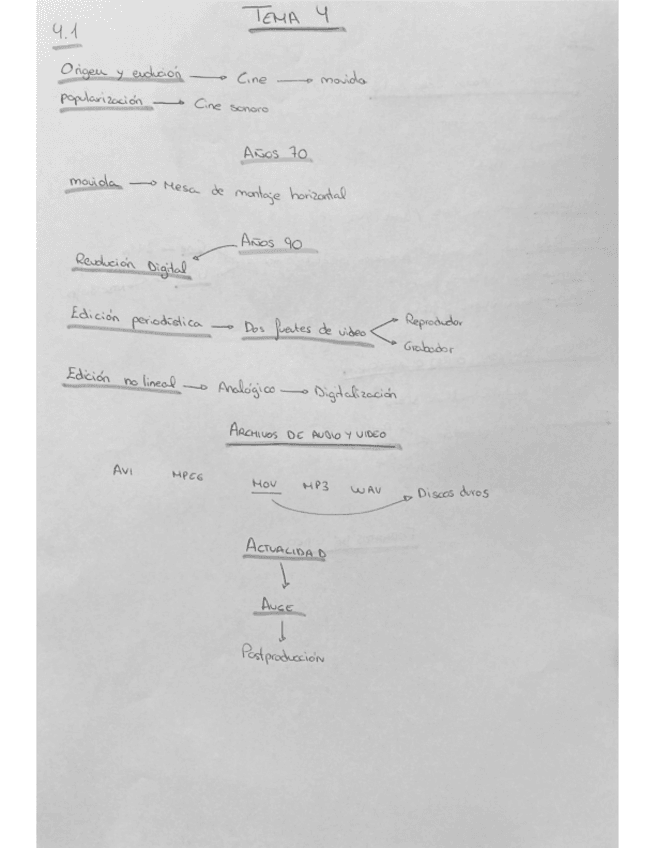 TEMA 4
4.1
Origen y evolución → Cine → moviola
Popularización → Cine sonoro
AÑOS 70
moviola → Mesa de montaje horizontal
AÑOS 90
Revolución Digital
Edición periodística → Dos fuentes de video
Reproductor
Grabador
Edición no lineal → Analógico → Digitalización
ARCHIVOS DE AUDIO Y VIDEO
AVI MPEG MOV MP3 WAV → Discos duros
ACTUALIDAD
↓
AUGE
↓
Postproducción